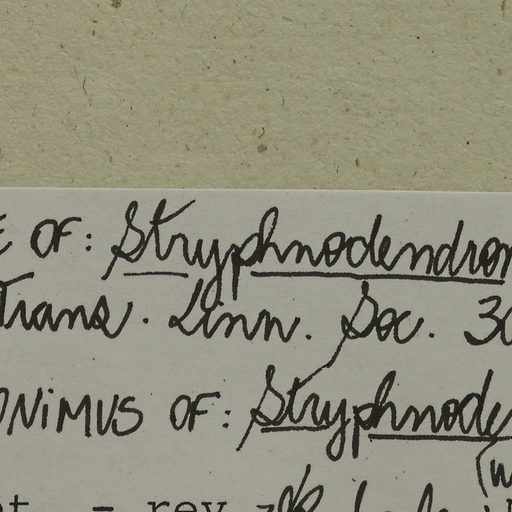 E OF: Stryphnodendron
Trans. Linn. Soc. 30
ONIMUS OF: Stryphnode
(w
t. - rev.